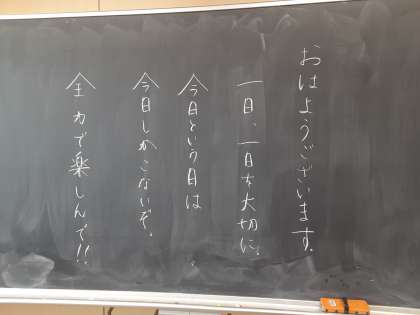 おはようございます。
一日、一日を大切に。
今日という日は
今日しかこないぞ。
全力で楽しんで!!